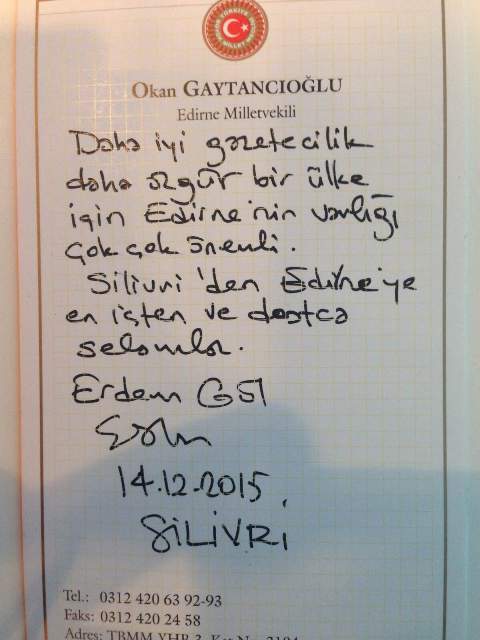 TÜRKİYE
MİLLET
Okan GAYTANCIOĞLU
Edirne Milletvekili
Daha iyi gazetecilik
daha özgür bir ülke
için Edirne'nin varlığı
çok çok önemli.
Silivri'den Edirne'ye
en içten ve dostca
selamlar.
Erdem Gül
14.12.2015
SİLİVRİ
Tel.: 0312 420 63 92-93
Faks: 0312 420 24 58
Adres: TBMM YHB 3. Kat No: 3104